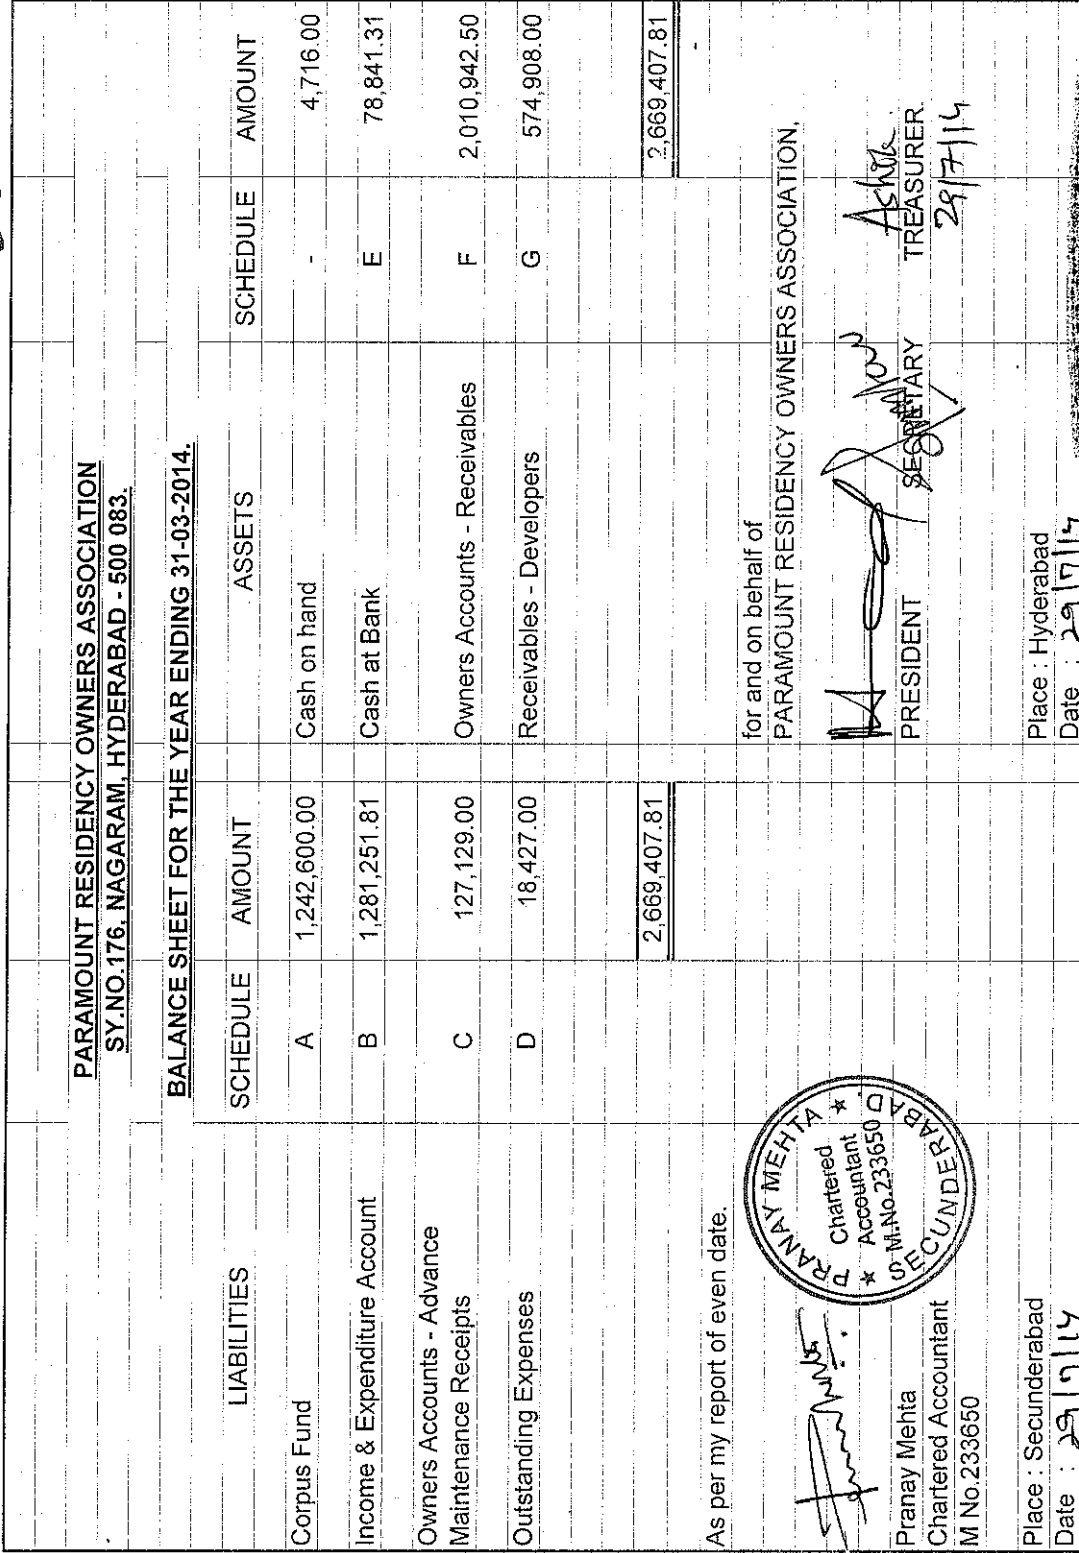 PARAMOUNT RESIDENCY OWNERS ASSOCIATION
SY.NO.176, NAGARAM, HYDERABAD - 500 083.
BALANCE SHEET FOR THE YEAR ENDING 31-03-2014.
LIABILITIES SCHEDULE AMOUNT ASSETS SCHEDULE AMOUNT
Corpus Fund A 1,242,600.00 Cash on hand - 4,716.00
Income & Expenditure Account B 1,281,251.81 Cash at Bank E 78,841.31
Owners Accounts - Advance
Maintenance Receipts C 127,129.00 Owners Accounts - Receivables F 2,010,942.50
Outstanding Expenses D 18,427.00 Receivables - Developers G 574,908.00
2,669,407.81 2,669,407.81
As per my report of even date.
for and on behalf of
PARAMOUNT RESIDENCY OWNERS ASSOCIATION,
PRANAY MEHTA
Chartered
Accountant
M.No.233650
SECUNDERABAD
Ashok
Pranay Mehta
Chartered Accountant
M No.233650
PRESIDENT SECRETARY TREASURER
29/7/14
Place : Secunderabad
Date : 29/7/14
Place : Hyderabad
Date : 29/7/14